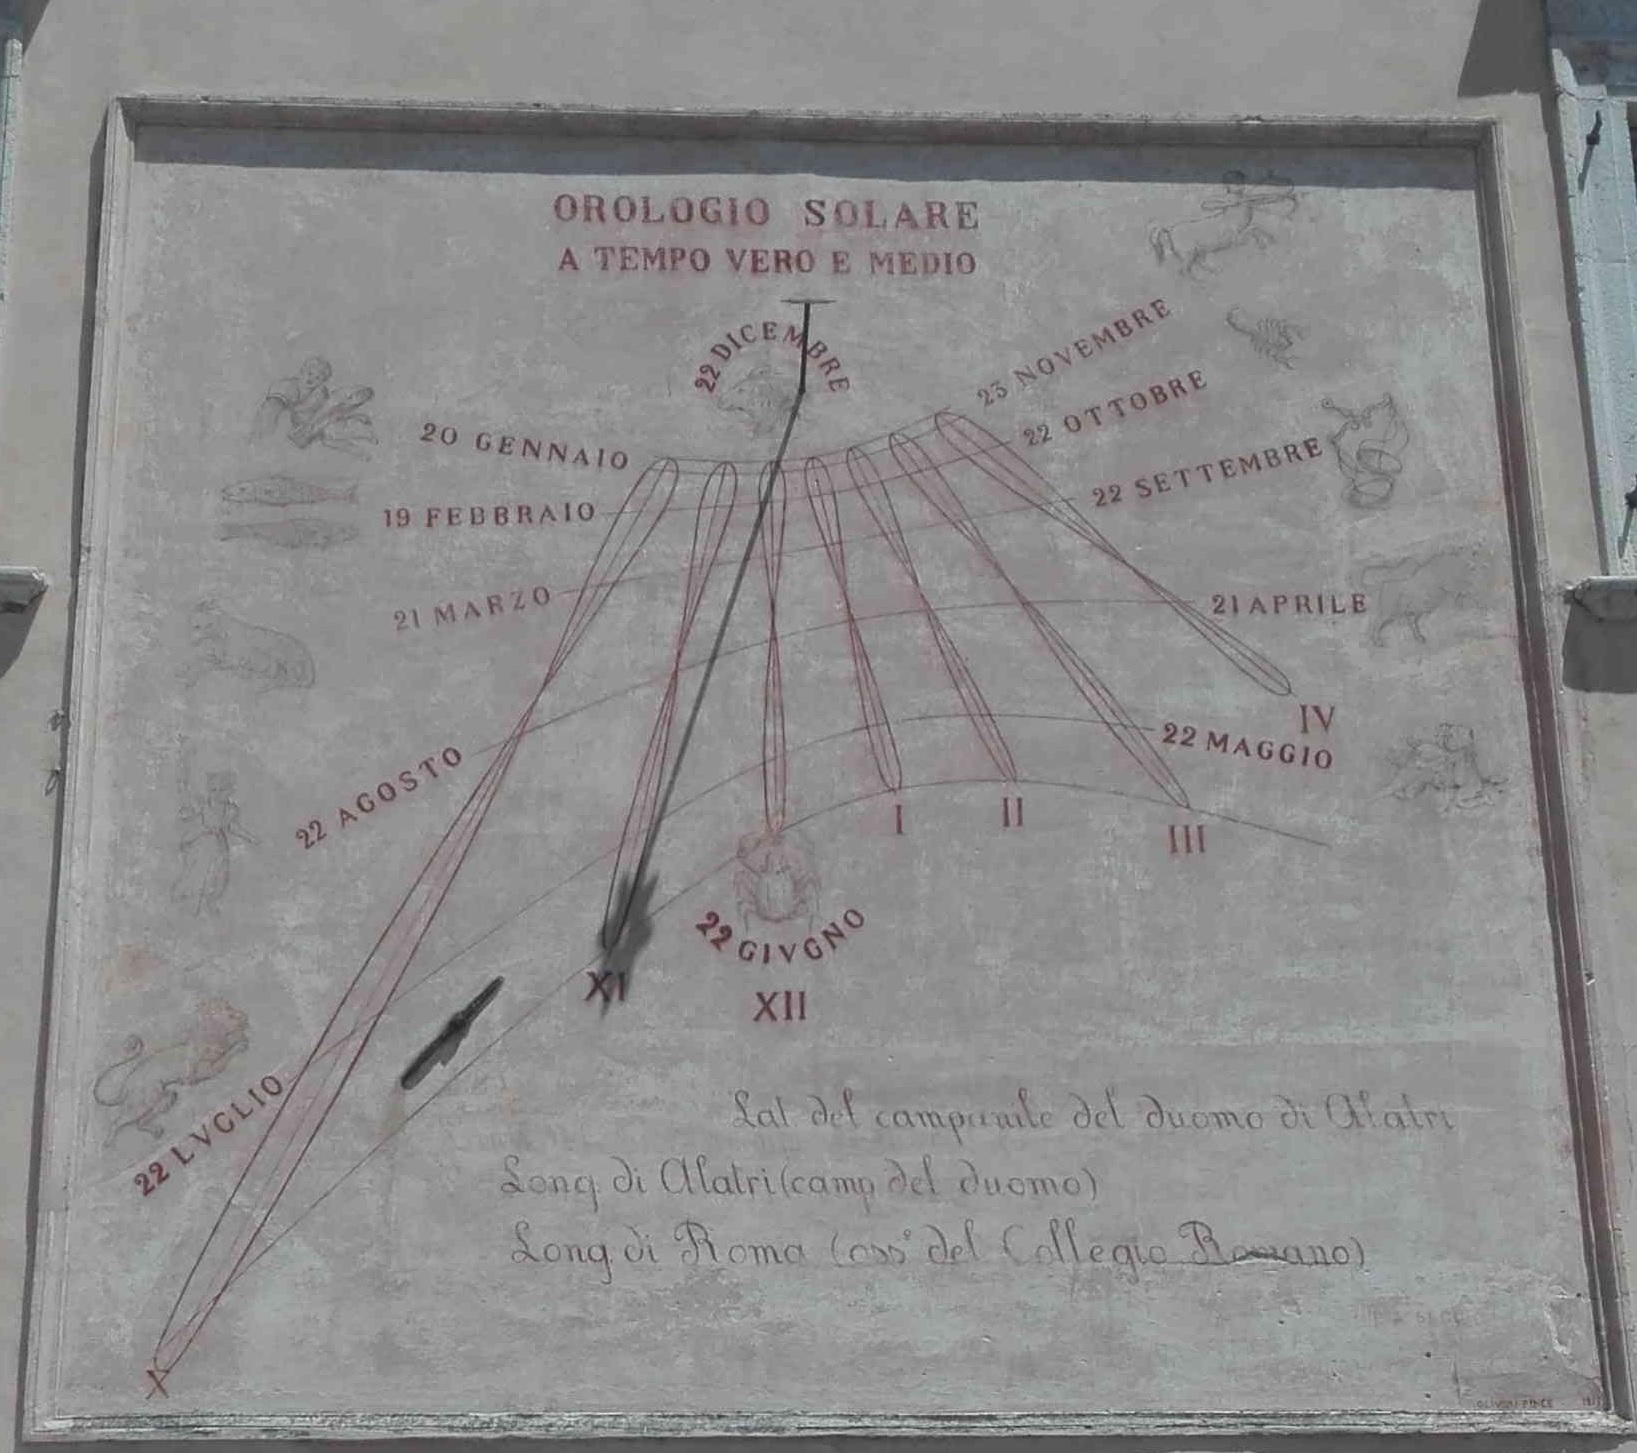 OROLOGIO SOLARE
A TEMPO VERO E MEDIO
22 DICEMBRE
23 NOVEMBRE
20 GENNAIO
22 OTTOBRE
19 FEBBRAIO
22 SETTEMBRE
21 MARZO
21 APRILE
22 AGOSTO
22 MAGGIO
22 LVGLIO
22 GIVGNO
X
XI
XII
I
II
III
IV
Lat del campanile del duomo di Alatri
Long. di Alatri (camp del duomo)
Long. di Roma (oss° del Collegio Romano)